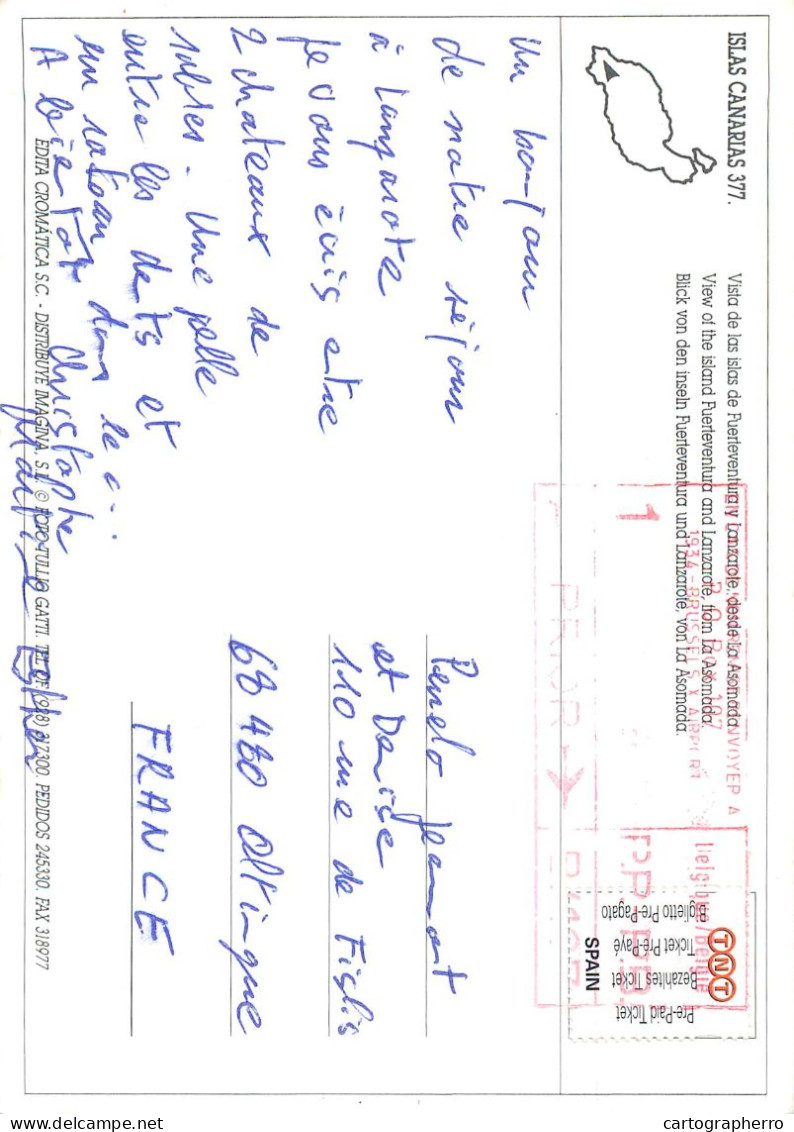 ISLAS CANARIAS 377.
Vista de las islas de Fuerteventura y Lanzarote, desde La Asomada.
View of the island Fuerteventura and Lanzarote, from La Asomada.
Blick von den inseln Fuerteventura und Lanzarote, von La Asomada.
Un bonjour
de notre séjour
à Lanzarote
je vous écris entre
2 chateaux de
sables. Une pelle
entre les dents et
un rateau dans le c...
A bientôt Christophe
Esther
ENVOYER A
P.O. Box 107
1934-BRUSSELS X AIRPORT
1
PRIOR
Belgique/België
P.P. P.B.
TNT
Pre-Paid Ticket
Bezahltes Ticket
Ticket Pré-Payé
Biglietto Pre-Pagato
SPAIN
Jeannot
et Denise
110 rue de Fislis
68480
FRANCE
EDITA CROMÁTICA S.C. - DISTRIBUYE IMAGINA, S.L. © FOTO TULLIO GATTI. TEL. OF. (928) 317300. PEDIDOS 245330. FAX 318977
delcampe.net
cartographerro